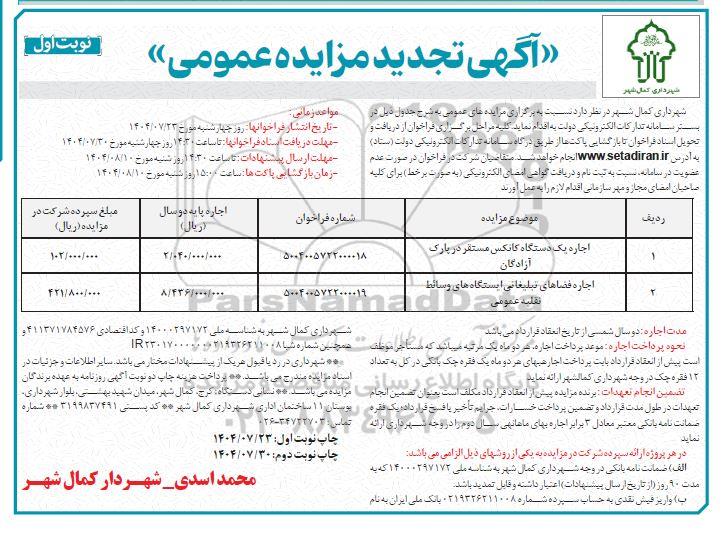 نوبت اول
«آگهی تجدید مزایده عمومی»
شهرداری کمال شهر
شهرداری کمال شهر در نظر دارد نسبت به برگزاری مزایده های عمومی به شرح جدول ذیل در
بستر سامانه تدارکات الکترونیکی دولت به اقدام نماید. کلیه مراحل برگزاری فراخوان از دریافت و
تحویل اسناد فراخوان تا بازگشایی پاکت‌ها از طریق درگاه سامانه تدارکات الکترونیکی دولت (ستاد)
به آدرس www.setadiran.ir انجام خواهد شد. متقاضیان شرکت در فراخوان در صورت عدم
عضویت در سامانه، نسبت به ثبت نام و دریافت گواهی امضای الکترونیکی (به صورت برخط) برای کلیه
صاحبان امضای مجاز و مهر سازمانی اقدام لازم را به عمل آورند
مواعد زمانی:
-تاریخ انتشار فراخوانها: روز چهارشنبه مورخ ۱۴۰۴/۰۷/۲۳
-مهلت دریافت اسناد فراخوانها: تا ساعت ۱۴:۳۰ روز چهارشنبه مورخ ۱۴۰۴/۰۷/۳۰
-مهلت ارسال پیشنهادات: تا ساعت ۱۴:۳۰ روز شنبه مورخ ۱۴۰۴/۰۸/۱۰
-زمان بازگشایی پاکت‌ها: ساعت ۱۵:۰۰ روز شنبه مورخ ۱۴۰۴/۰۸/۱۰
ردیف موضوع مزایده شماره فراخوان اجاره پایه دو سال (ریال) مبلغ سپرده شرکت در مزایده (ریال)
۱ اجاره یک دستگاه کانکس مستقر در پارک آزادگان ۵۰۰۴۰۰۵۷۲۲۰۰۰۰۱۸ ۲/۰۴۰/۰۰۰/۰۰۰ ۱۰۲/۰۰۰/۰۰۰
۲ اجاره فضاهای تبلیغاتی ایستگاه های وسائط نقلیه عمومی ۵۰۰۴۰۰۵۷۲۲۰۰۰۰۱۹ ۸/۴۳۶/۰۰۰/۰۰۰ ۴۲۱/۸۰۰/۰۰۰
مدت اجاره: دو سال شمسی از تاریخ انعقاد قرارداد می باشد.
نحوه پرداخت اجاره: موعد پرداخت اجاره، هر دو ماه یک مرتبه میباشد که مستأجر موظف
است پیش از انعقاد قرارداد بابت پرداخت اجاره بهای هر دو ماه یک فقره چک بانکی در کل به تعداد
۱۲ فقره چک در وجه شهرداری کمالشهر ارائه نماید
تضمین انجام تعهدات: برنده مزایده پیش از انعقاد قرارداد مکلف است بعنوان تضمین انجام
تعهدات در طول مدت قرارداد و تضمین پرداخت خسارات، جرایم تأخیر یا فسخ قرارداد یک فقره
ضمانت نامه بانکی معتبر معادل ۳ برابر اجاره بهای ماهانه‌ی سال دوم را در وجه شهرداری ارائه
نماید
در هر پروژه ارائه سپرده شرکت در مزایده به یکی از روشهای ذیل الزامی می باشد:
الف) ضمانت نامه بانکی در وجه شهرداری کمال شهر به شناسه ملی ۱۴۰۰۰۲۹۷۱۷۲ که به
مدت ۹۰ روز (از تاریخ ارسال پیشنهادات) اعتبار داشته و قابل تمدید باشد.
ب) واریز فیش نقدی به حساب سپرده شماره ۰۲۱۹۳۲۶۲۱۱۰۰۸ بانک ملی ایران به نام
شهرداری کمال شهر به شناسه ملی ۱۴۰۰۰۲۹۷۱۷۲ و کد اقتصادی ۴۱۱۳۷۱۷۸۴۵۷۶ و
همچنین شماره شبا
**شهرداری در رد یا قبول هر یک از پیشنهادات مختار می باشد. سایر اطلاعات و جزئیات در
اسناد مزایده مندرج می باشد. ** پرداخت هزینه چاپ دو نوبت آگهی روزنامه به عهده برندگان
مزایده می باشد. ** نشانی دستگاه: کرج، کمال شهر، میدان شهید بهشتی، بلوار شهرداری،
بوستان ۱۱ ساختمان اداری شهرداری کمال شهر ** کد پستی ۳۱۹۹۸۳۷۴۹۱ ** شماره
تماس: ۳۴۷۲۲۷۰۳-۰۲۶
چاپ نوبت اول: ۱۴۰۴/۰۷/۲۳
چاپ نوبت دوم: ۱۴۰۴/۰۷/۳۰
محمد اسدی_ شهردار کمال شهر
ParsNamadData